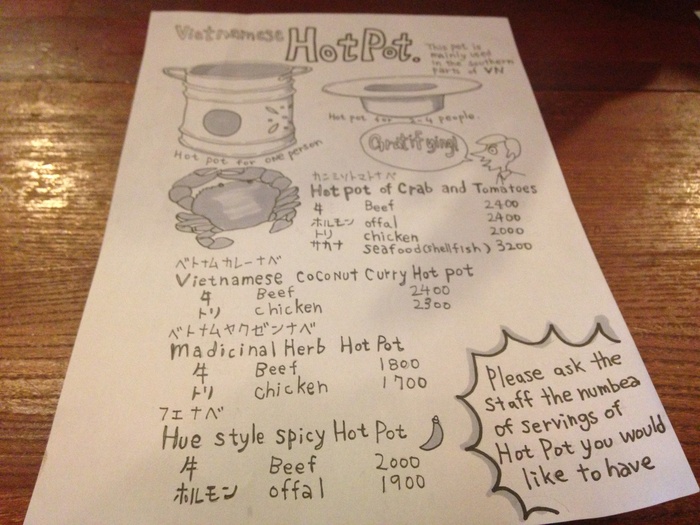 Vietnamese Hot Pot.
This pot is
mainly used
in the southern
parts of VN
Hot pot for one person
Hot pot for 2-4 people.
Gratifying!
カニミソトマトナベ
Hot pot of Crab and Tomatoes
牛 Beef 2400
ホルモン offal 2400
トリ chicken 2000
サカナ seafood(shellfish) 3200
ベトナムカレーナベ
Vietnamese coconut curry Hot pot
牛 Beef 2400
トリ chicken 2300
ベトナムヤクゼンナベ
madicinal Herb Hot Pot
牛 Beef 1800
トリ chicken 1700
フエナベ
Hue style spicy Hot Pot
牛 Beef 2000
ホルモン offal 1900
Please ask the
staff the numbea
of servings of
Hot Pot you would
like to have